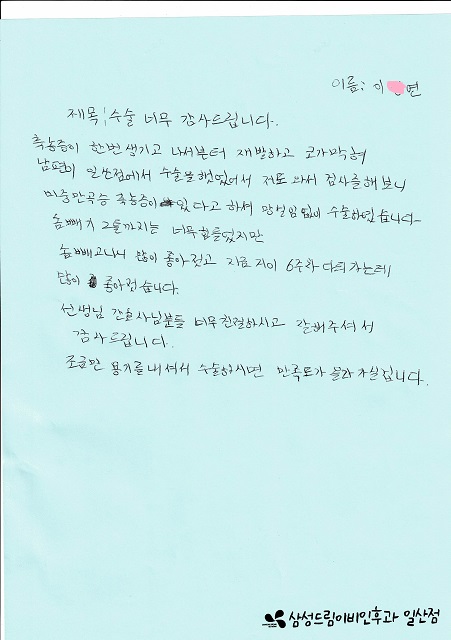 이름: 이 연
제목: 수술 너무 감사드립니다.
축농증이 한번 생기고 나서부터 재발하고 코가막혀
남편이 일산점에서 수술을했었어서 저도 와서 검사를해보니
비중만곡증 축농증이 있다고 하셔 망설임없이 수술하였습니다
솜빼기 2틀까지는 너무힘들었지만
솜빼고나니 많이 좋아졌고 치료차이 6주차 다되가는데
많이 좋아졌습니다.
선생님 간호사님분들 너무친절하시고 잘해주셔서
감사드립니다.
조금만 용기를내셔서 수술하시면 만족도가 올라가실겁니다.
삼성드림이비인후과 일산점